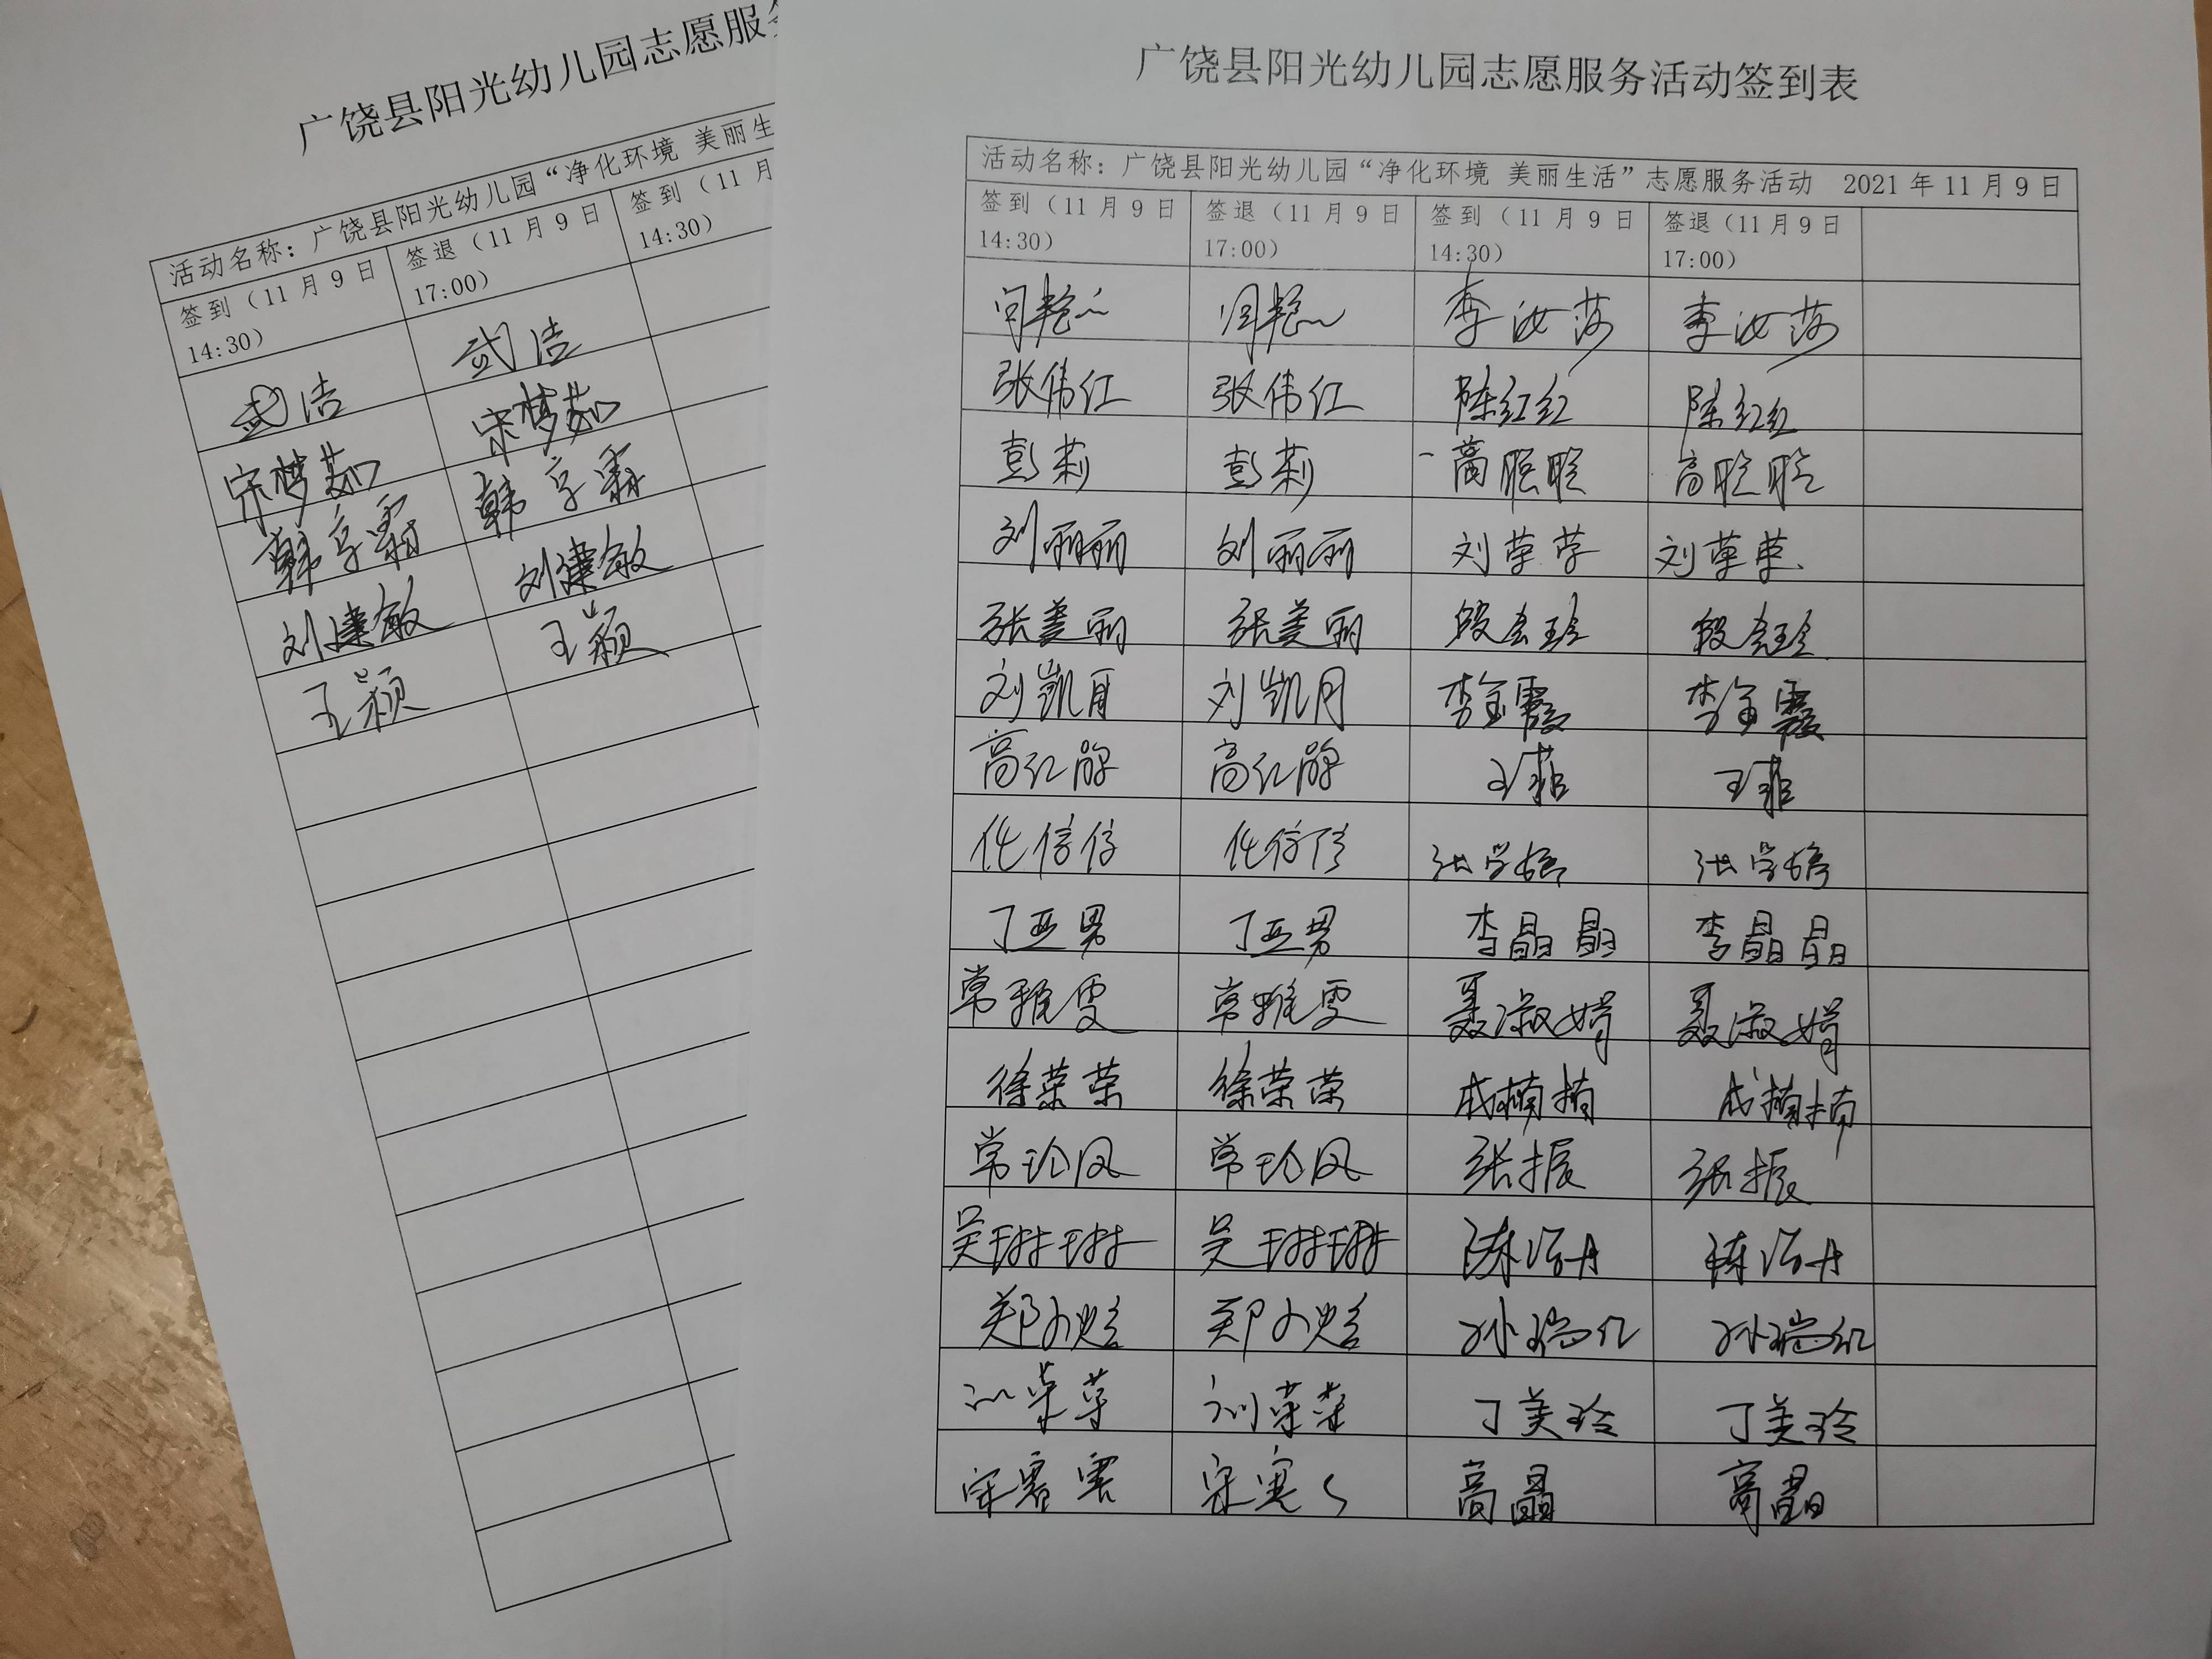 广饶县阳光幼儿园志愿服
活动名称：广饶县阳光幼儿园“净化环境 美丽生
签到（11 月 9 日 14:30） 签退（11 月 9 日 17:00） 签到（11 月 14:30）
武洁 武洁
宋梦茹 宋梦茹
韩享霖 韩享霖
刘建敏 刘建敏
王颖 王颖
广饶县阳光幼儿园志愿服务活动签到表
活动名称：广饶县阳光幼儿园“净化环境 美丽生活”志愿服务活动 2021 年 11 月 9 日
签到（11 月 9 日 14:30） 签退（11 月 9 日 17:00） 签到（11 月 9 日 14:30） 签退（11 月 9 日 17:00）
李汝莎 李汝莎
张伟红 张伟红 陈红红 陈红红
彭莉 彭莉 高聪聪 高聪聪
刘丽丽 刘丽丽 刘苹苹 刘苹苹
张美丽 张美丽 段会玲 段会玲
刘凯月 刘凯月 李金霞 李金霞
高红 高红 王菲 王菲
化倩倩 化倩倩 张学婷 张学婷
丁亚男 丁亚男 李晶晶 李晶晶
常雅雯 常雅雯 聂淑娟 聂淑娟
徐荣荣 徐荣荣 成楠楠 成楠楠
常玲凤 常玲凤 张振 张振
吴琳琳 吴琳琳 陈浩丹 陈浩丹
郑小燕 郑小燕 孙瑞红 孙瑞红
刘荣荣 刘荣荣 丁美玲 丁美玲
宋 宋 高晶 高晶